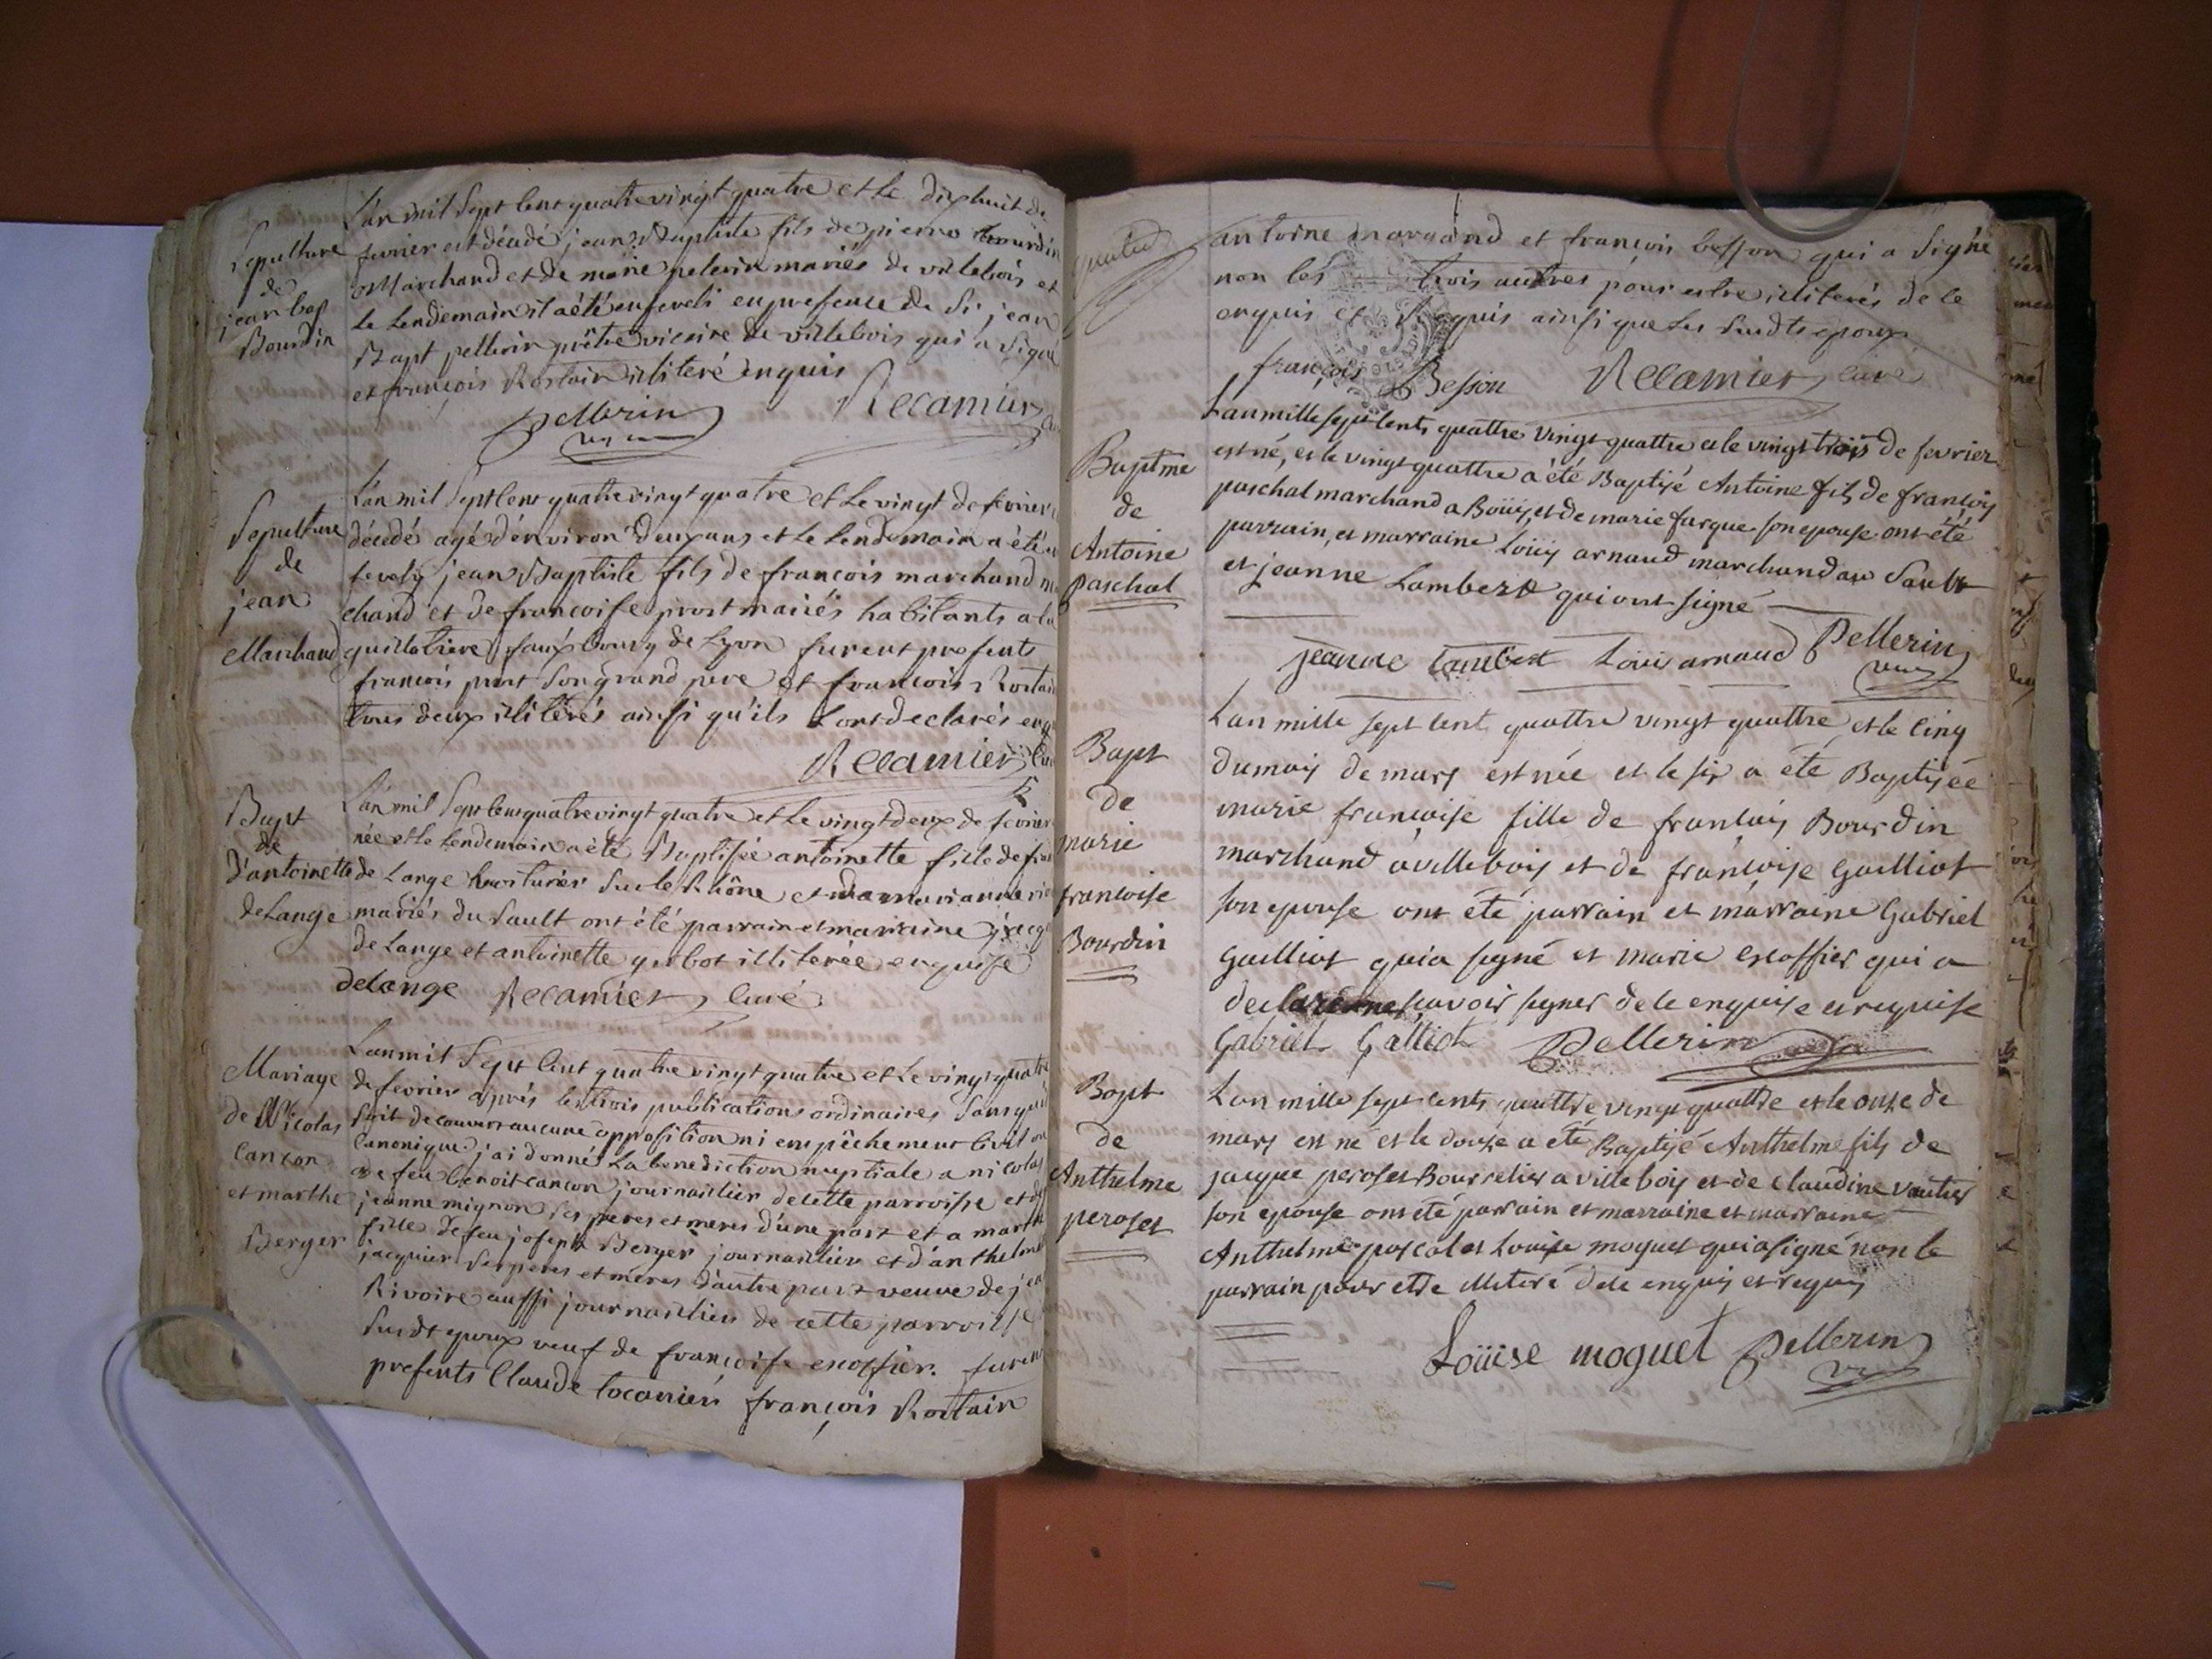 Sepulture
de
jean bap
Bourdin
L'an mil Sept Cent quatre vingt quatre et le dixhuit de
fevrier est décédé jean Baptiste fils de pierre Bourdin
Marchand et de marie pelerin mariés de villebois et
le Lendemain il a été enseveli en presence de Sr jean
Bapt pellerin prêtre vicaire de villebois qui a signé
et françois Rostain illiteré enquis
Pellerin Recamier
Sepulture
de
jean
Marchand
L'an mil Sept Cent quatre vingt quatre et Le vingt de fevrier
décédé agé d'environ deux ans et Le Lendemain a été en
sevely jean Baptiste fils de françois marchand mar
chand et de françoise prost mariés habitants a la
guillotiere fauxbourg de Lyon furent presents
françois prost Son grand pere et françois Rostain
tous deux illiterés ainsi qu'ils L'ont declarés enq
Recamier Curé
Bapt
de
d'antoinette
de Lange
L'an mil Sept Cent quatre vingt quatre et Le vingt deux de fevrier
née et Le Lendemain a été Baptisée antoinette fille de
de Lange voiturier Sur le Rhône et de marianne
mariés du Sault ont été parrain et marraine
de Lange et antoinette gerbot illiterée enquise
delange Recamier Curé
Mariage
de Nicolas
Cancon
et marthe
Berger
L'an mil Sept Cent quatre vingt quatre et Le vingt quatre
de fevrier après les trois publications ordinaires Sans qu'il
Soit decouvert aucune opposition ni empêchement Civil ou
Canonique j'ai donné La benediction nuptiale a nicolas
de feu benoit cancon journaillier de cette parroisse et de
jeanne mignon Ses peres et meres d'une part et a marthe
fille de feu joseph Berger journaillier et d'anthelme
jacquier Ses peres et meres d'autre part veuve de jean
Rivoire aussi journaillier de cette parroisse
Susdt epoux veuf de françoise escoffier. furent
presents Claude tocanier françois Rostain
antoine marchand et françois besson qui a Signé
non les trois autres pour estre illiterés de ce
enquis et Requis ainsi que Les Susdts epoux
françois Besson Recamier curé
Baptme
de
Antoine
paschal
L'an mille sept Cents quattre vingt quattre et le vingt trois de fevrier
est né, et le vingt quattre a été Baptisé Antoine fils de françois
paschal marchand a Boüis, et de marie farque son epouse ont été
parrain, et marraine Loüis arnaud marchand au Sault
et jeanne Lambert qui ont signé
jeanne Lambert Louis arnaud Pellerin
Bapt
de
marie
françoise
Bourdin
L'an mille sept Cent quattre vingt quattre et le Cinq
du mois de mars est née et le six a été Baptisée
marie françoise fille de françois Bourdin
marchand a villebois et de françoise Gailliot
son epouse ont été parrain et marraine Gabriel
Gailliot qui a signé et marie escoffier qui a
declaré ne scavoir signer de ce enquise et requise
Gabriel Galliot Pellerin
Bapt
de
Anthelme
peroset
L'an mille sept cents quattre vingt quattre et le onze de
mars est né et le douze a été Baptisé Anthelme fils de
jacque peroset Bourrelier a villebois et de Claudine vautier
son epouse ont été parrain et marraine et marraine
Anthelme pascal et Louise moguet qui a signé non le
parrain pour etre illiteré de ce enquis et requis
Loüise moguet Pellerin